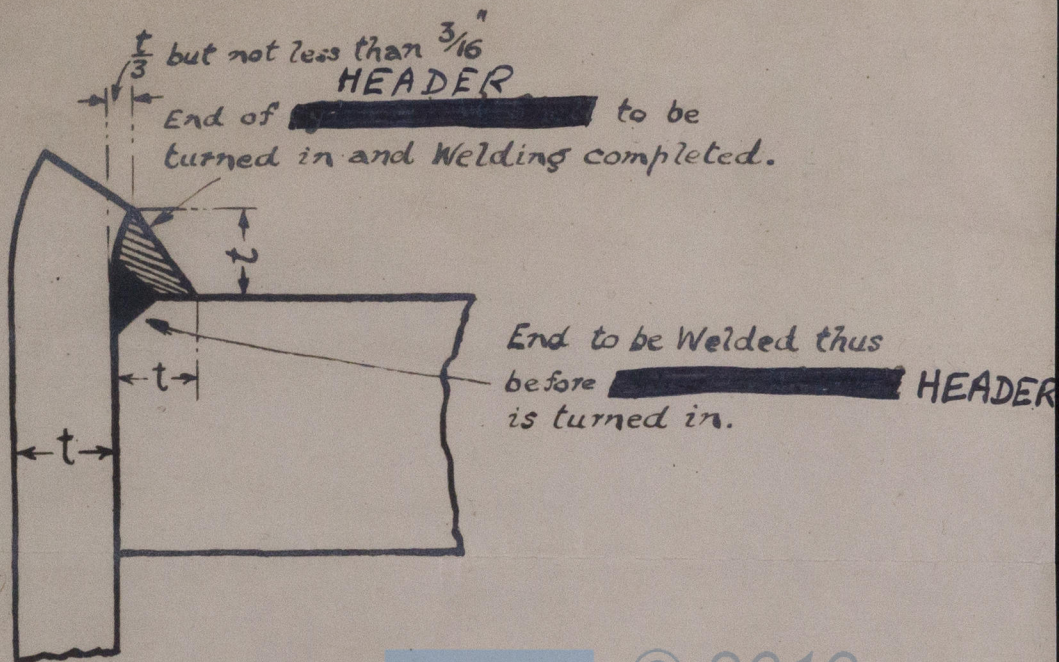 t/3 but not less than 3/16"
HEADER
End of to be
turned in and Welding completed.
t
t
End to be Welded thus
before HEADER
is turned in.
t
© 2019